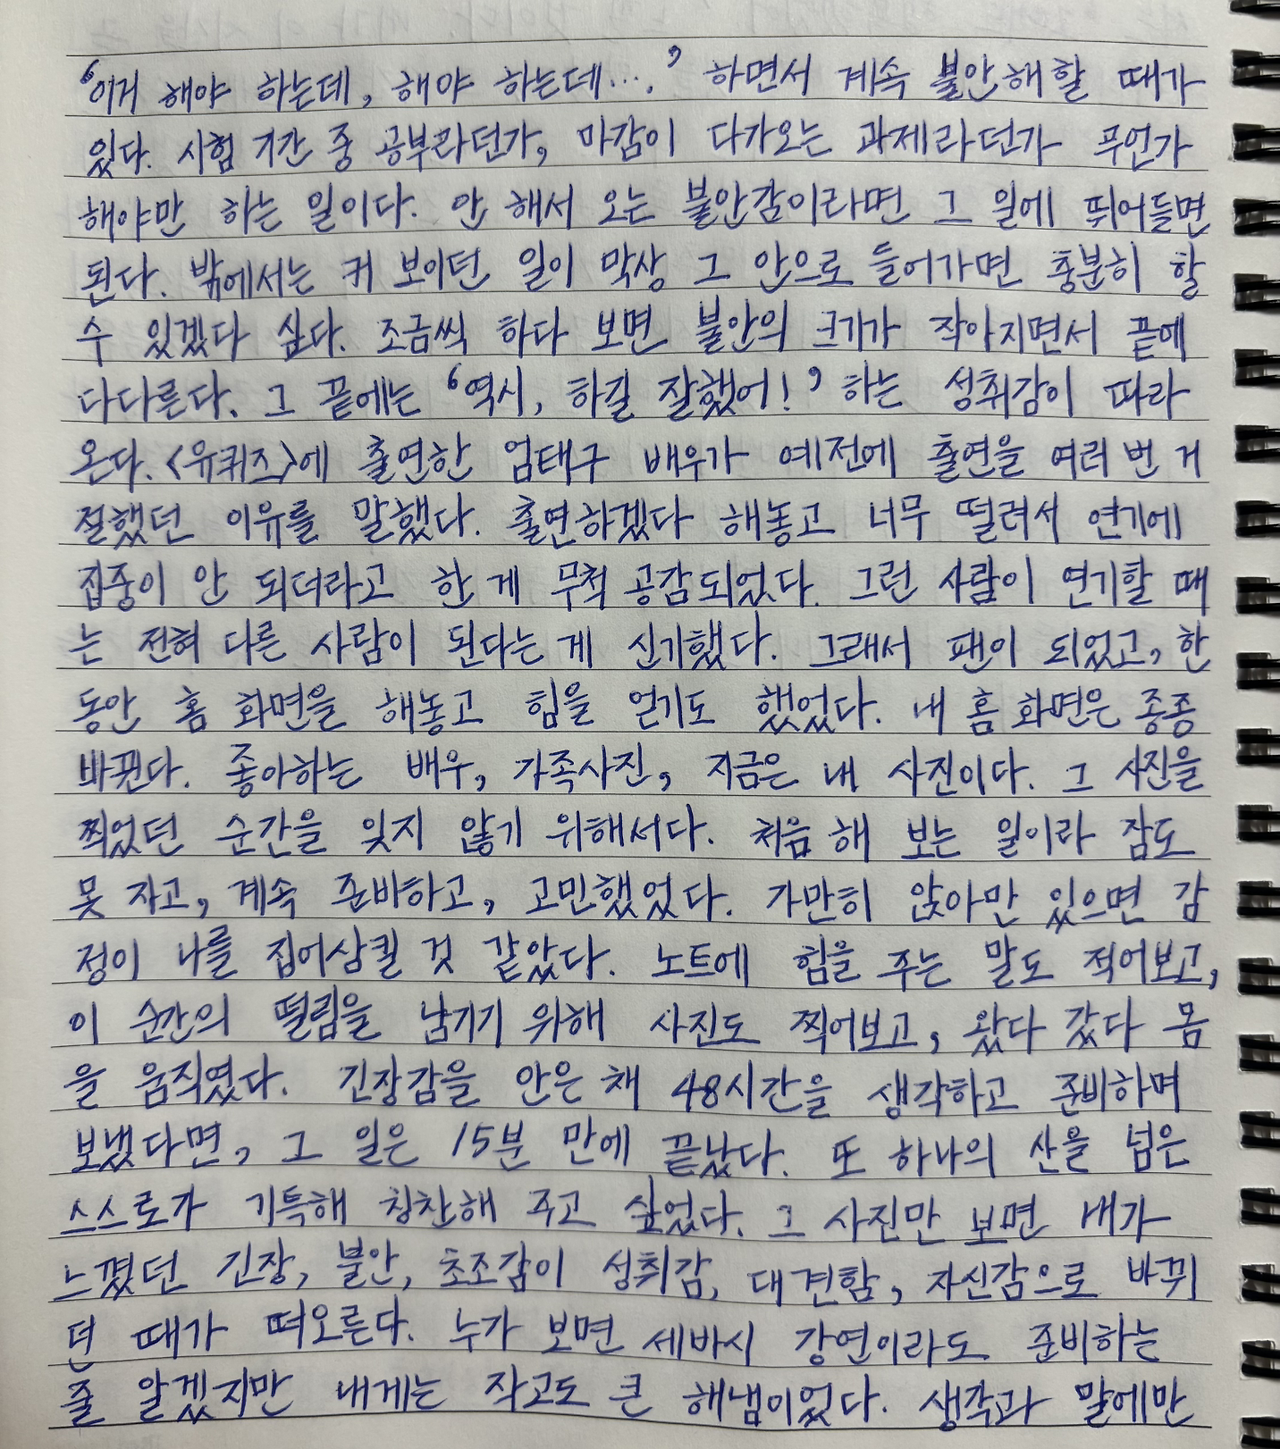 '이거 해야 하는데, 해야 하는데….' 하면서 계속 불안해할 때가
있다. 시험 기간 중 공부라던가, 마감이 다가오는 과제라던가 무언가
해야만 하는 일이다. 안 해서 오는 불안감이라면 그 일에 뛰어들면
된다. 밖에서는 커 보이던 일이 막상 그 안으로 들어가면 충분히 할
수 있겠다 싶다. 조금씩 하다 보면 불안의 크기가 작아지면서 끝에
다다른다. 그 끝에는 '역시, 하길 잘했어!' 하는 성취감이 따라
온다. <유퀴즈>에 출연한 엄태구 배우가 예전에 출연을 여러 번 거
절했던 이유를 말했다. 출연하겠다 해놓고 너무 떨려서 연기에
집중이 안 되더라고 한 게 무척 공감되었다. 그런 사람이 연기할 때
는 전혀 다른 사람이 된다는 게 신기했다. 그래서 팬이 되었고, 한
동안 홈 화면을 해놓고 힘을 얻기도 했었다. 내 홈 화면은 종종
바뀐다. 좋아하는 배우, 가족사진, 지금은 내 사진이다. 그 사진을
찍었던 순간을 잊지 않기 위해서다. 처음 해 보는 일이라 잠도
못 자고, 계속 준비하고, 고민했었다. 가만히 앉아만 있으면 감
정이 나를 집어삼킬 것 같았다. 노트에 힘을 주는 말도 적어보고,
이 순간의 떨림을 남기기 위해 사진도 찍어보고, 왔다 갔다 몸
을 움직였다. 긴장감을 안은 채 48시간을 생각하고 준비하며
보냈다면, 그 일은 15분 만에 끝났다. 또 하나의 산을 넘은
스스로가 기특해 칭찬해 주고 싶었다. 그 사진만 보면 내가
느꼈던 긴장, 불안, 초조감이 성취감, 대견함, 자신감으로 바뀌
던 때가 떠오른다. 누가 보면 세바시 강연이라도 준비하는
줄 알겠지만 내게는 작고도 큰 해냄이었다. 생각과 말에만